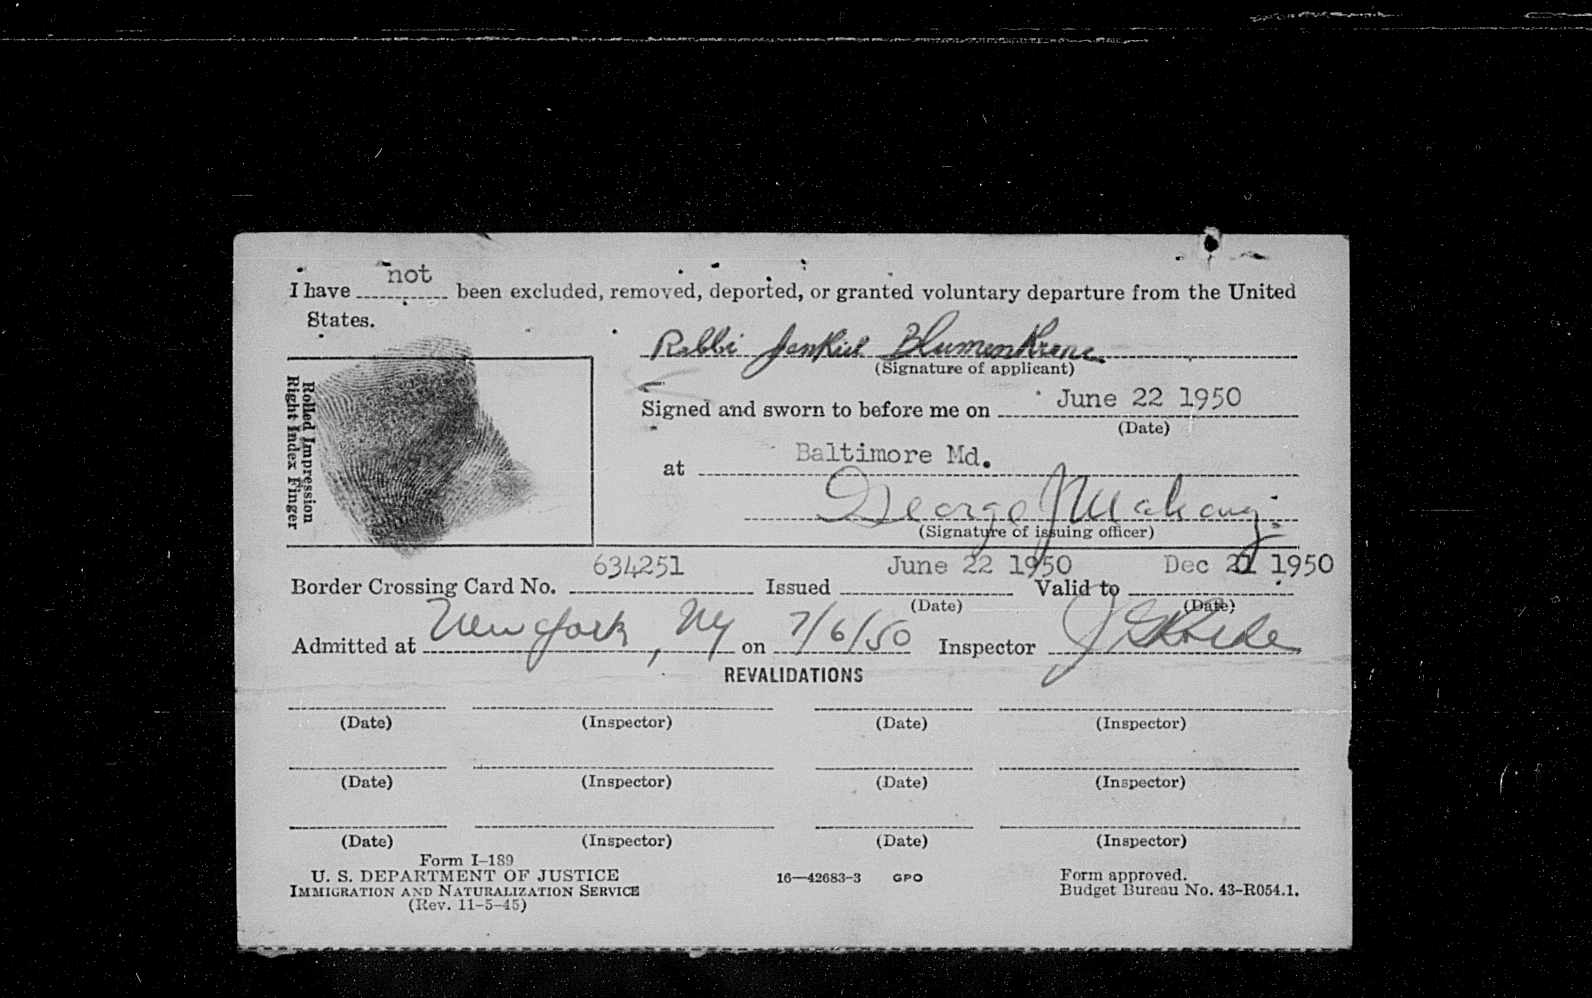 I have not been excluded, removed, deported, or granted voluntary departure from the United
States.
Rolled Impression
Right Index Finger
Rabbi Jankiel Blumenkranc
(Signature of applicant)
Signed and sworn to before me on June 22 1950
(Date)
at Baltimore Md.
George J
(Signature of issuing officer)
Border Crossing Card No. 634251 Issued June 22 1950 Valid to Dec 21 1950
(Date) (Date)
Admitted at New York, NY on 7/6/50 Inspector J
REVALIDATIONS
(Date) (Inspector) (Date) (Inspector)
(Date) (Inspector) (Date) (Inspector)
(Date) (Inspector) (Date) (Inspector)
Form I-189
U. S. DEPARTMENT OF JUSTICE 16—42683-3 GPO Form approved.
IMMIGRATION AND NATURALIZATION SERVICE Budget Bureau No. 43-R054.1.
(Rev. 11-5-45)